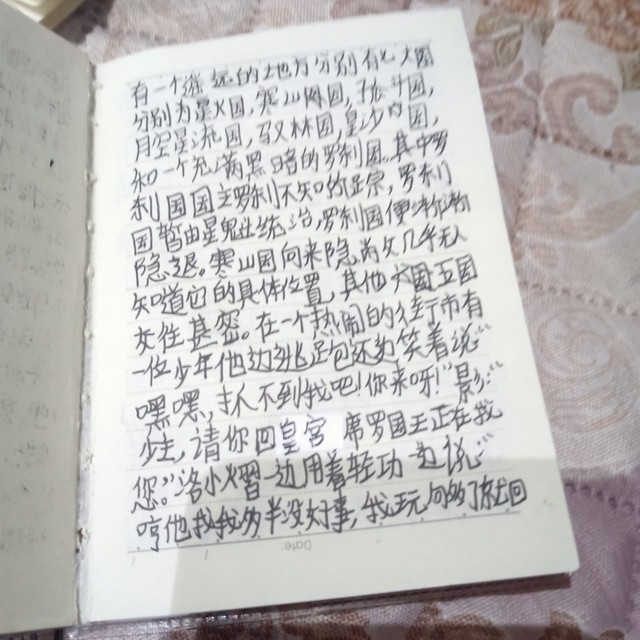 有一个遥远的地方分别有七大国
分别为星火国,寒山国,
月空星流国,双林国,星沙国,
和一个充满黑暗的罗刹国。其中罗
刹国国主罗刹不知所踪,罗刹
国暂由星鬼业统治,罗刹国便渐渐
隐退。寒山国向来隐,几乎无人
知道它的具体位置,其他大国五国
交往甚密。在一个热闹的街市有
一位少年他边跑还边笑着说:“
嘿嘿,抓不到我吧!你来呀!”影:“
少主,请你回皇宫 席罗国主正在找
您。”洛小熠一边用着轻功 边说:“
哼他找我多半没好事,我玩够了就回
Date: